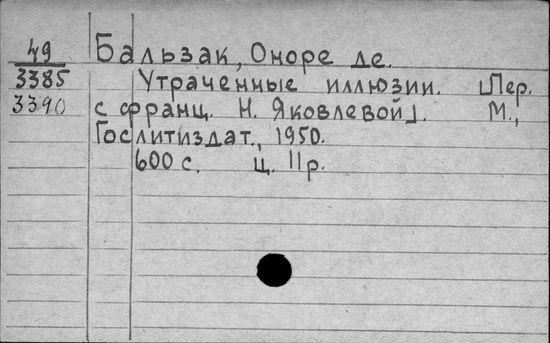 49 Бальзак, Оноре де.
3385 Утраченные иллюзии. [Пер.
3390 с франц. Н. Яковлевой]. М.,
Гослитиздат., 1950.
600 с. Ц. 11р.